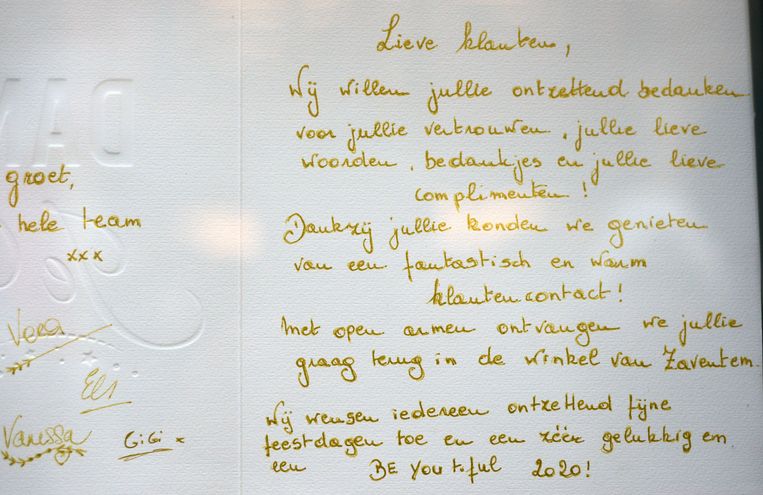 groet,
hele team
xxx
Vera
Els
Vanessa
GiGi x
Lieve klanten,
Wij willen jullie ontzettend bedanken
voor jullie vertrouwen, jullie lieve
woorden, bedankjes en jullie lieve
complimenten!
Dankzij jullie konden we genieten
van een fantastisch en warm
klantencontact!
Met open armen ontvangen we jullie
graag terug in de winkel van Zaventem.
Wij wensen iedereen ontzettend fijne
feestdagen toe en een zéér gelukkig en
een BE YOUtiful 2020!